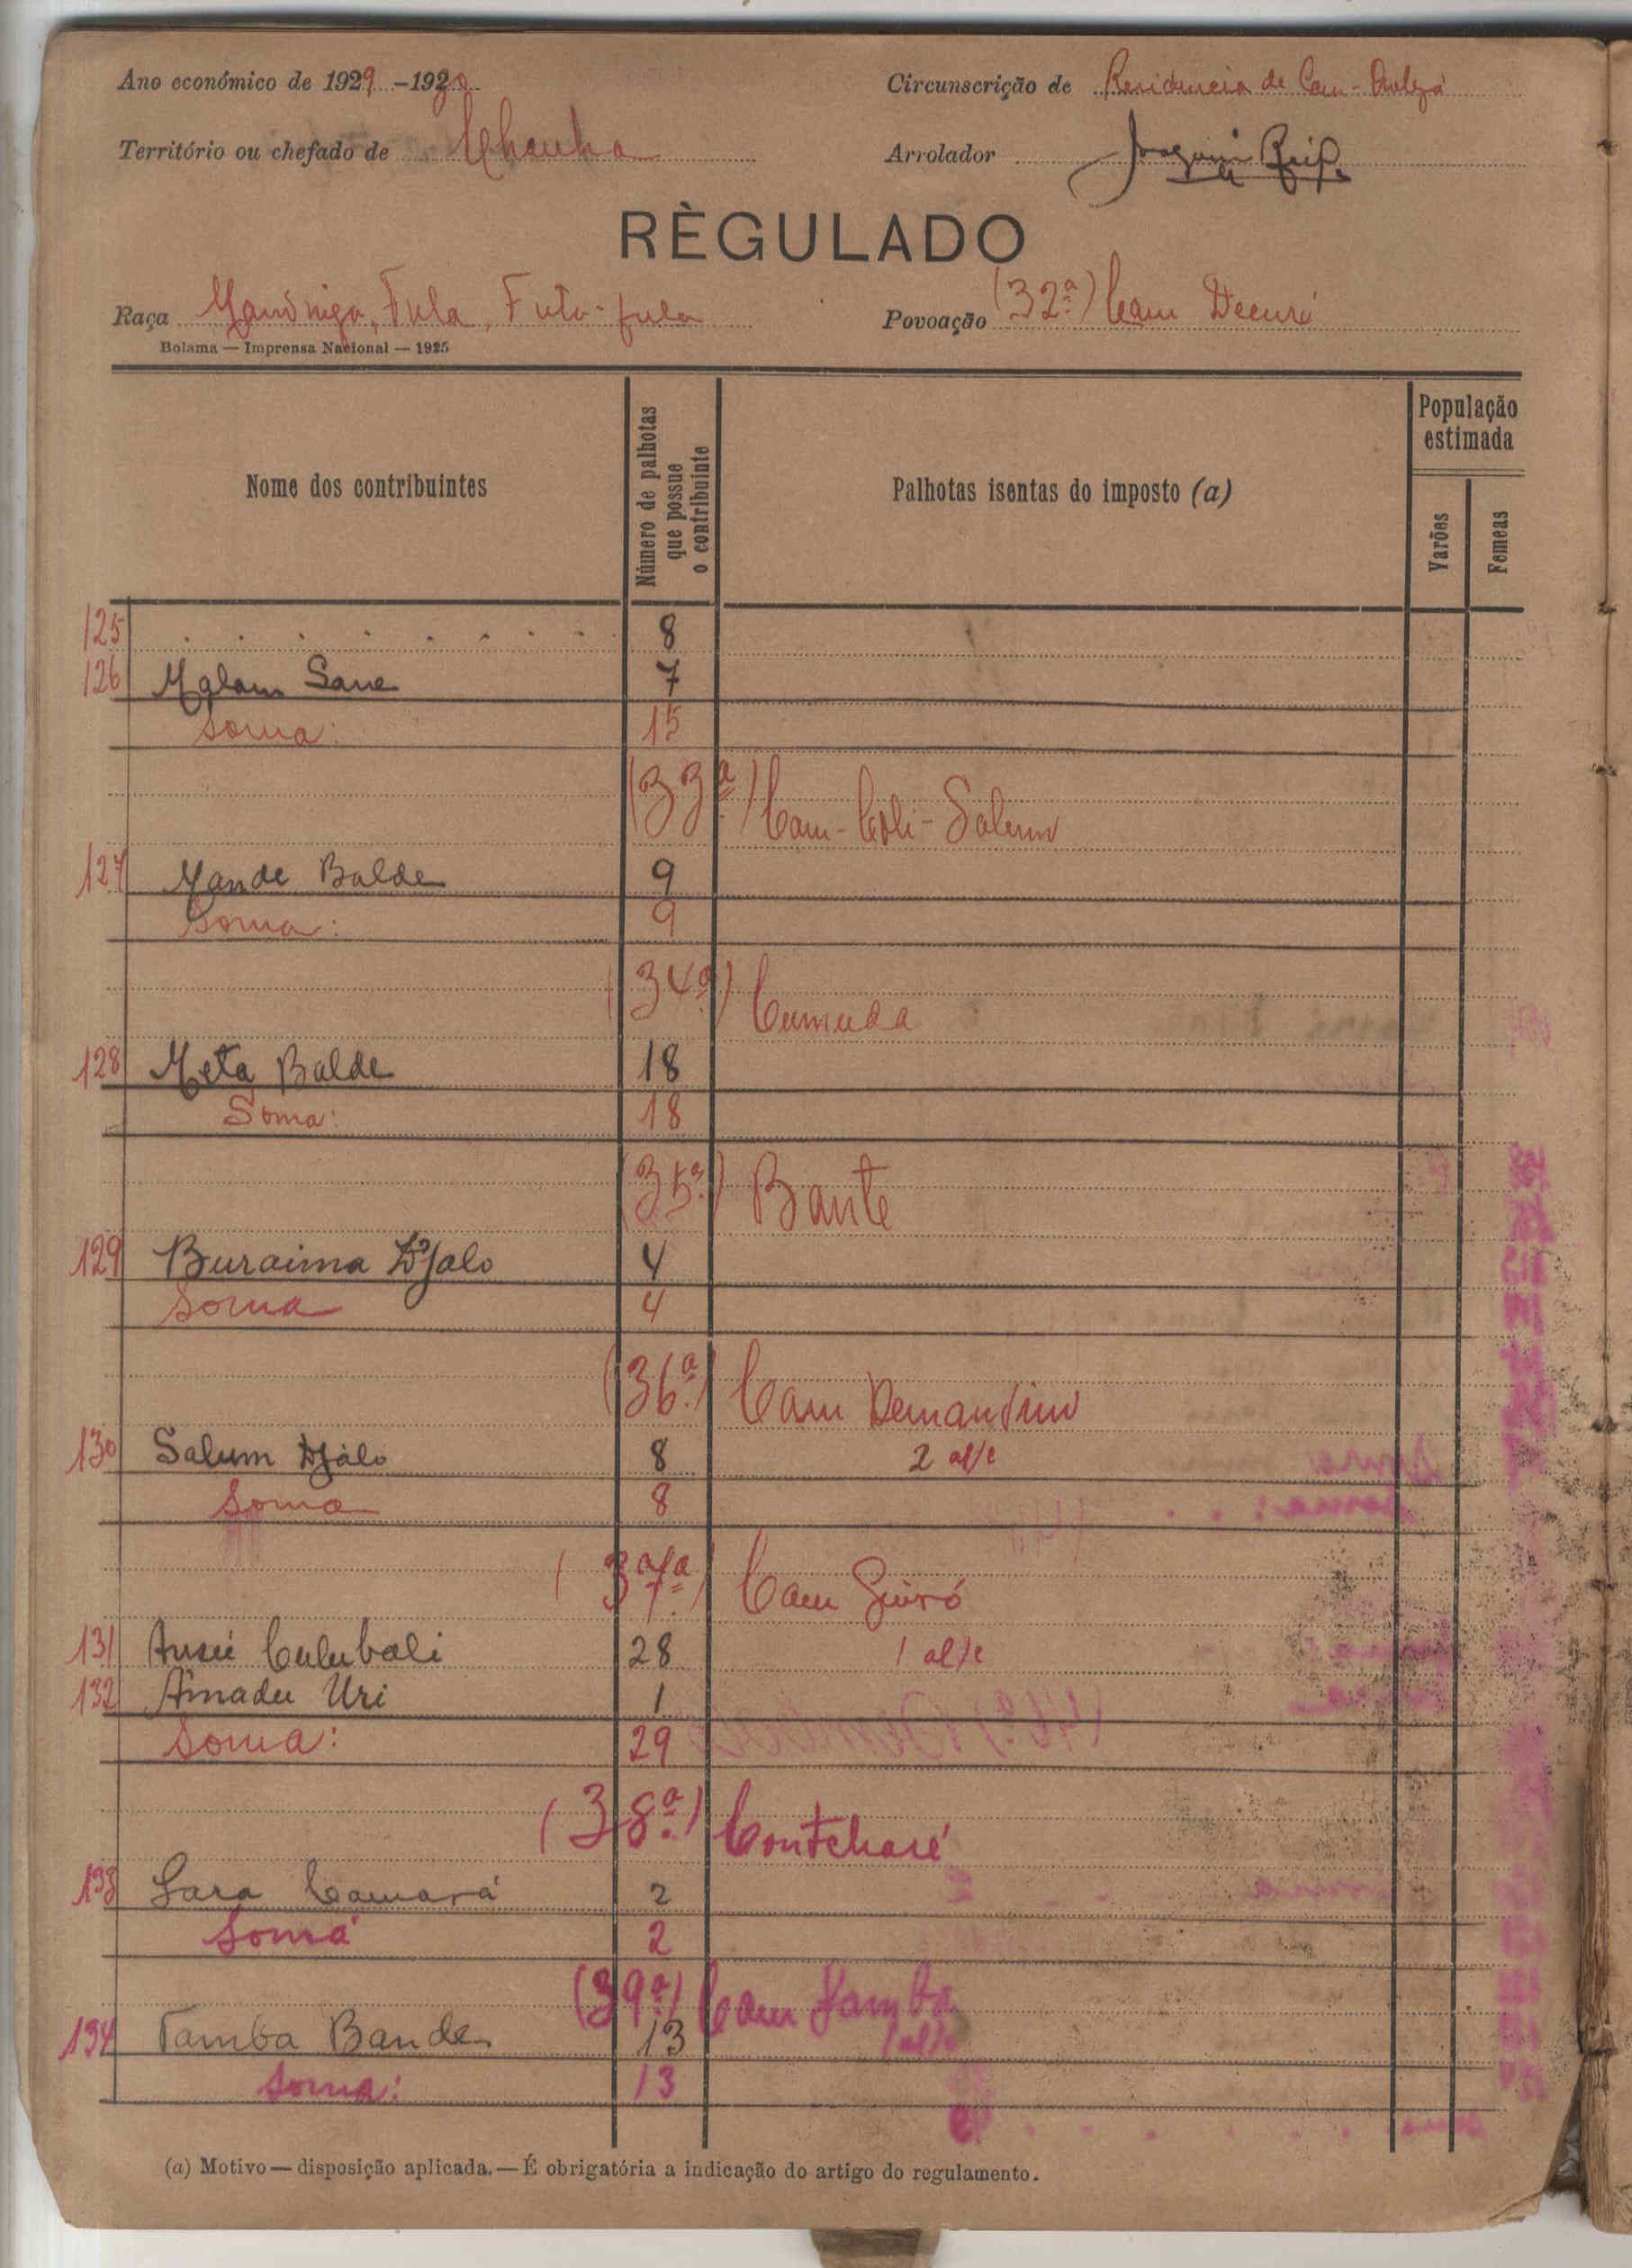 Ano económico de 1929-1930
Circunscrição de Residencia de Cam-
Território ou chefado de Chanha
Arrolador Joaquim
RÈGULADO
Raça Mandniga, Fula, Futa-fula
Povoação (32ª) Cam Decuré
Bolama — Imprensa Nacional — 1925
Nome dos contribuintes
Número de palhotas
que possue
o contribuinte
Palhotas isentas do imposto (a)
População
estimada
Varões
Femeas
125 . . . . . . . . . 8
126 Malam Sane 7
Soma: 15
(33ª) Cam-Coli-Salum
127 Mande Balde 9
Soma: 9
(34ª) Cumuda
128 Meta Balde 18
Soma: 18
(35ª) Bante
129 Buraima Djalo 4
Soma 4
(36ª) Cam Demandim
130 Salum Djálo 8 2 al/c
Soma 8
(37ª) Cam Guiró
131 Culubali 28 1 al/c
132 Amadu Uri 1
Soma: 29
(38ª) Contcharé
133 Camará 2
Soma 2
(39ª) Cam Samba
134 Tamba Bande 13 1 al/c
Soma: 13
(a) Motivo — disposição aplicada. — É obrigatória a indicação do artigo do regulamento.